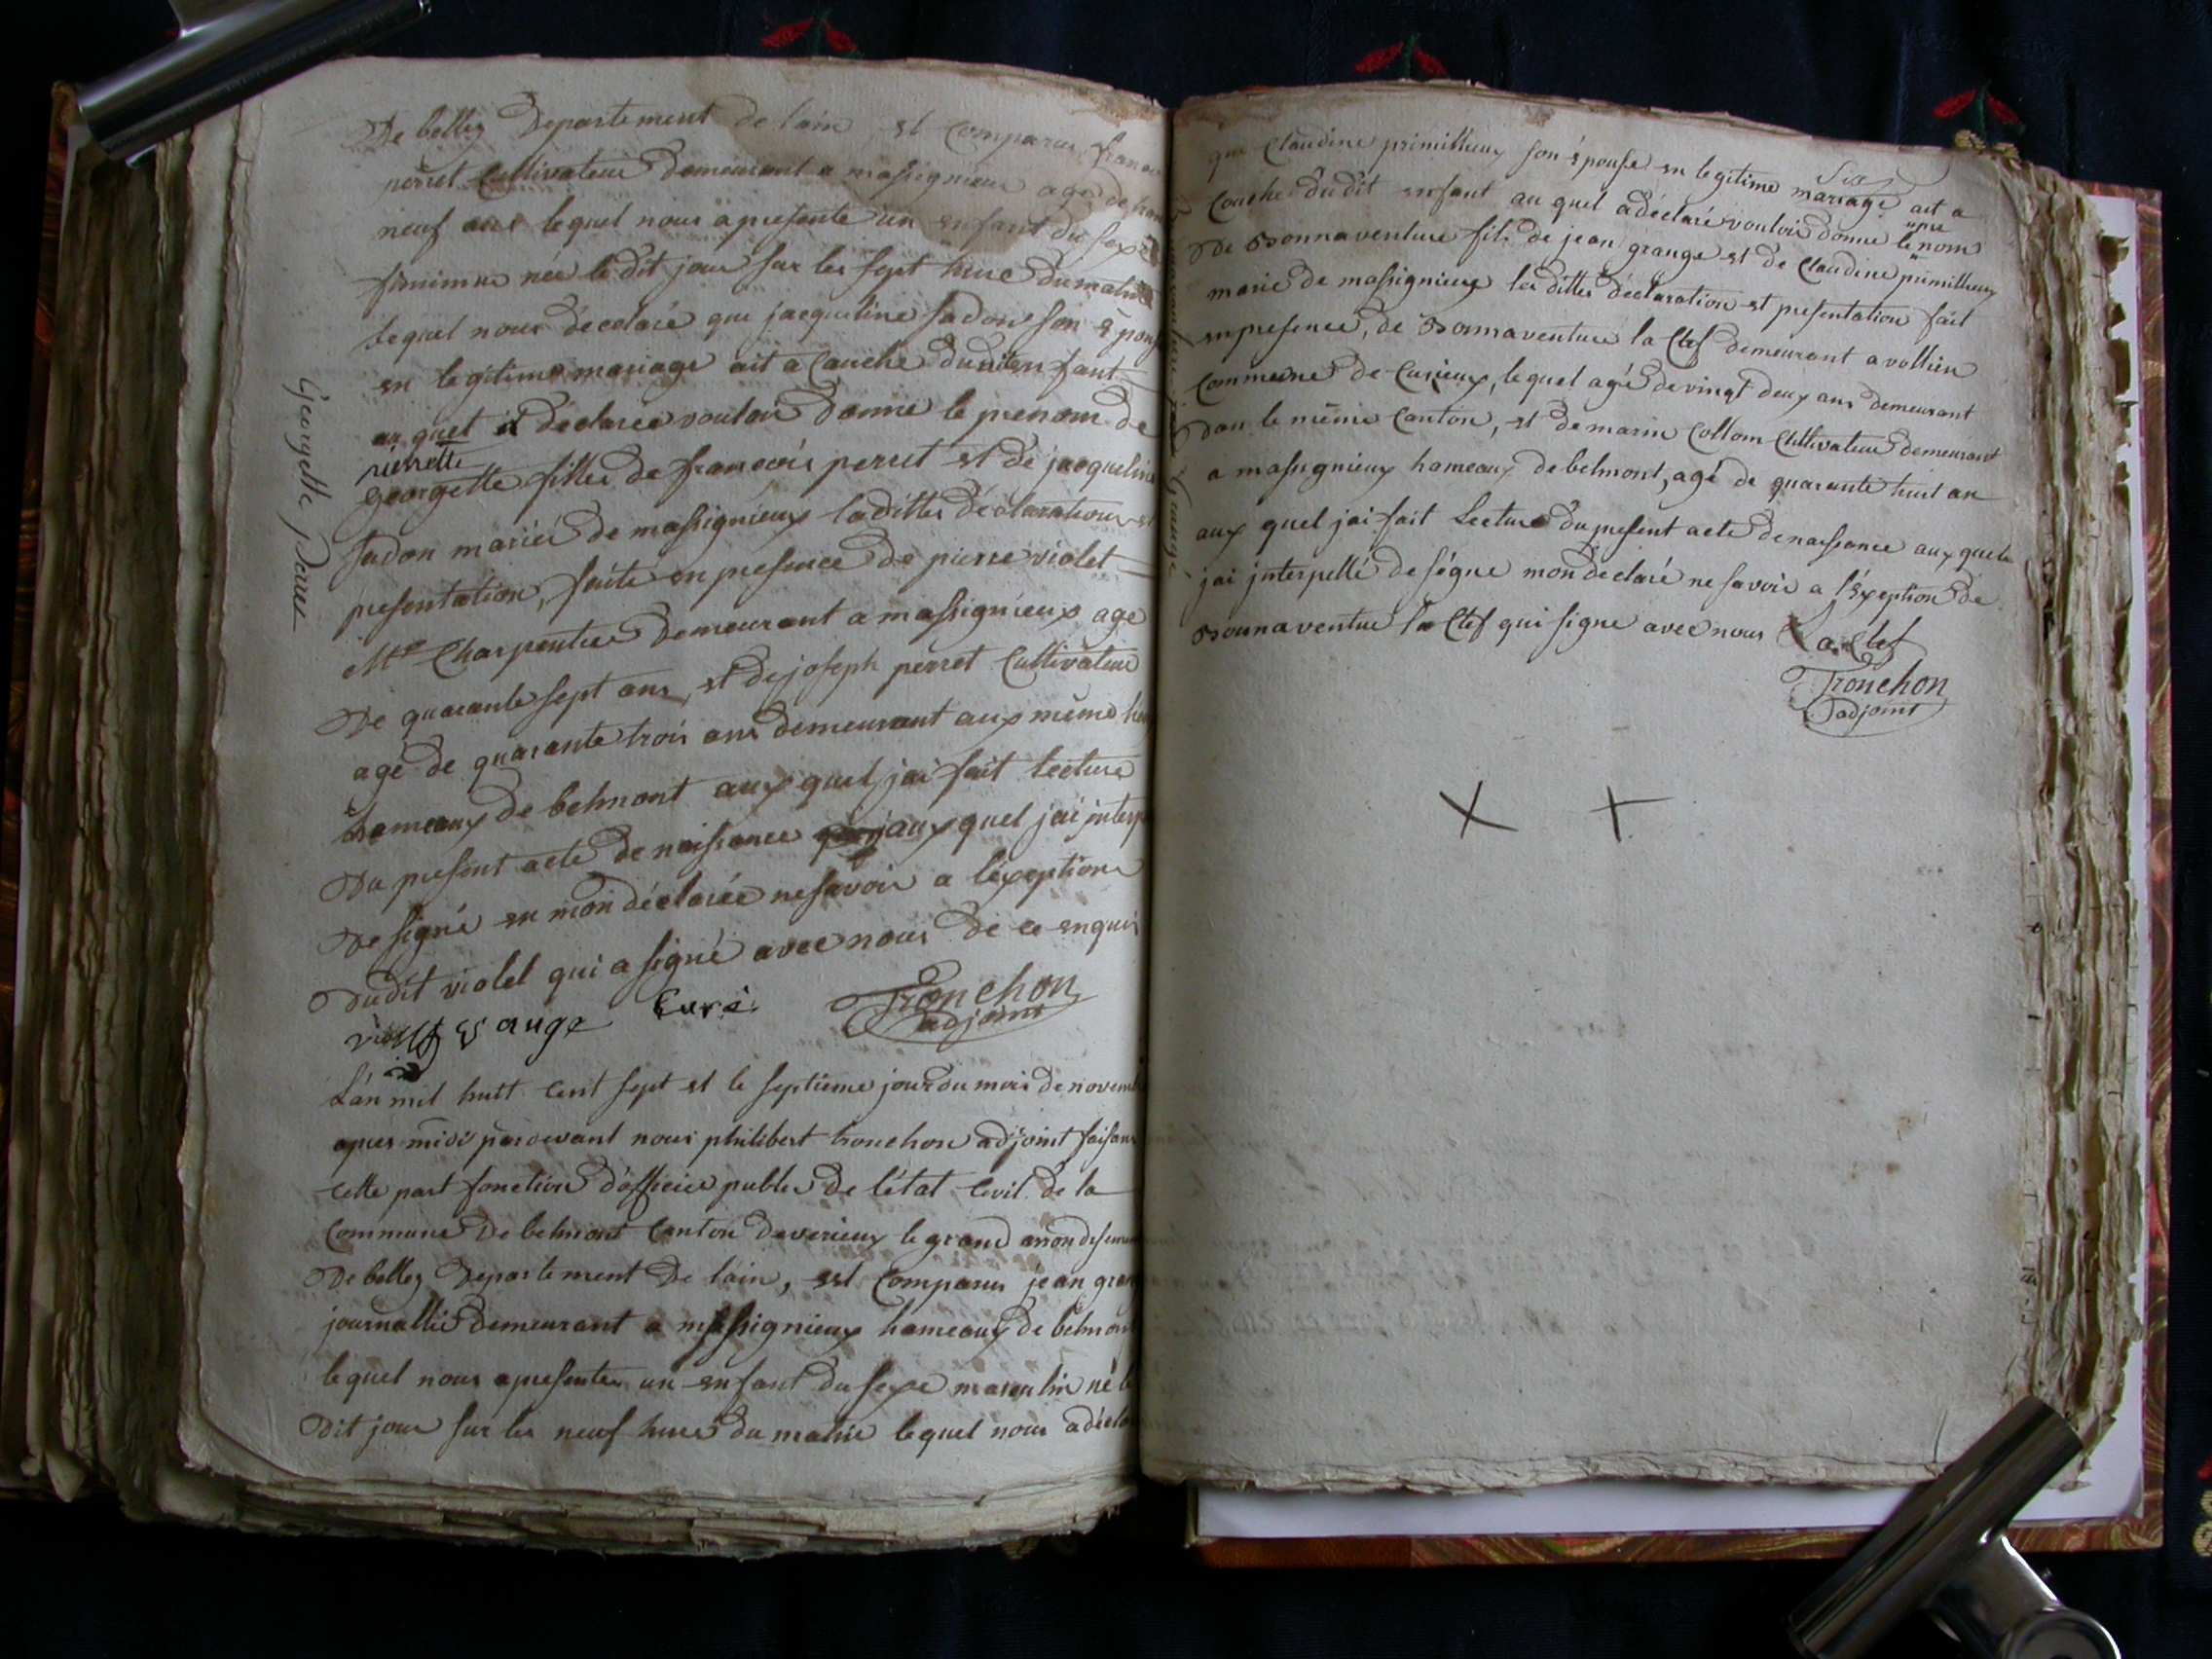 De belley Departement de lain est Comparu
perret Cultivateur Demeurant a massignieux agé de
neuf ans lequel nous a presente un enfant du sexe
feminin née le dit jour sur les sept heure du matin
lequel nous déclaré que jacqueline sadon son
en legitime mariage ait a Couché dudit enfant
au quel il déclarée vouloir donne le prenom de
pierrette
georgette filles de francois perret et de jacqueline
sadon mariés de massignieux laditte déclaration et
presentation, faite en presence de pierre violet
Me Charpentier Demeurant a massignieux agé
De quarante sept ans, et de joseph perret Cultivateur
agé de quarante trois ans demeurant aux même
hameaux de belmont aux quel jai fait lecture
Du present acte de naissance aux quel jai
De signé en mon déclarée ne savoir a léxeption
Dudit violet qui a signé avec nous De ce enquis
violet
Curé
Tronchon
adjoint
Lan mil huit Cent sept et le septième jour du mois de
apres midi pardevant nous philibert tronchon adjoint
Cette part fonction d'officier public De létat Civil de la
Commune De belmont Canton de virieux le grand
De belley Departement De lain, est Comparus jean
journallié demeurant a massignieux hameaux de
lequel nous a presenter un enfant du sexe masculin né
Dit jour sur les neuf heure du matin lequel nous
Georgette perret
que Claudine primillieux son épouse en legitime mariage ait a
Couché dudit enfant au quel a déclaré vouloir donne le nom
De Bonnaventure fils de jean grange et de Claudine primillieux
marié de massignieux les dittes déclaration et presentation fait
en presence, de Bonnaventure la Clef demeurant a vollien
Commune de Cuzieux, lequel agé de vingt deux ans demeurant
dan le même Canton, et de marin Collom Cultivateur demeurant
a massignieux hameaux de belmont, agé de quarante huit an
aux quel jai fait Lecture du present acte de naissance aux quels
jai interpellé deségne mon déclaré ne savoir a léxeption de
Bonnaventure la Clef qui signe avec nous La Clef
Tronchon
adjoint